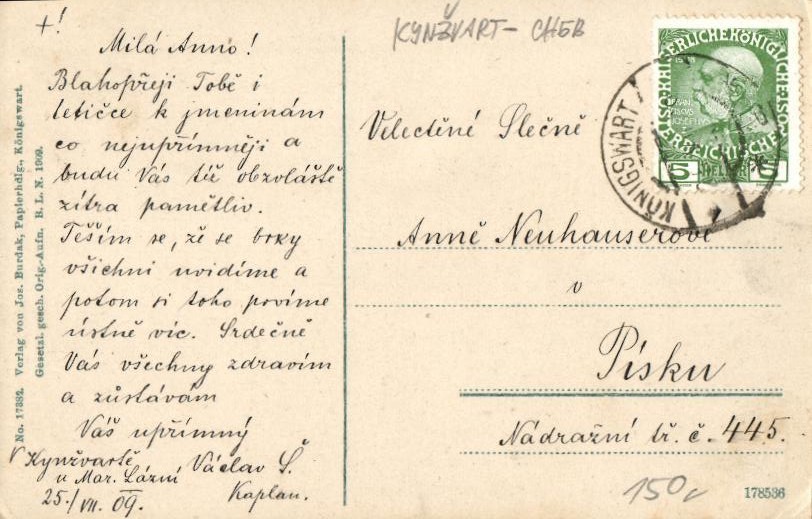 +!
KYNŽVART - CHEB
Milá Anno!
Blahopřeji Tobě i
tetičce k jmeninám
co nejupřímněji a
budu Vás též obzvláště
zítra pamětliv.
Těším se, že se brky
všichni uvidíme a
potom si toho povíme
ústně víc. Srdečně
Vás všechny zdravím
a zůstávám
Váš upřímný
Václav Š.
Kaplan.
V Kynžvartě
u Mar. Lázní
25./VII. 09.
Velectěné Slečně
Anně Neuhauserové
v
Písku
Nádražní tř. č. 445.
150,-
178536
No. 17382. Verlag von Jos. Burdak, Papierhdlg., Königswart.
Gesetzl. gesch. Orig.-Aufn. B. L. N. 1909.
KAISERLICHE KÖNIGLICHE ÖSTERREICHISCHE POST
5 HELLER 5
KÖNIGSWART